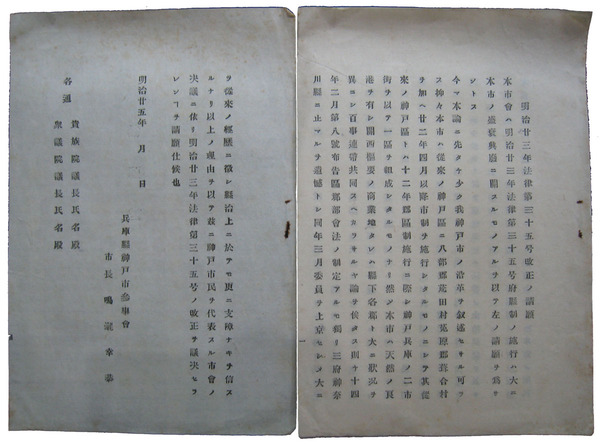 明治廿三年法律第三十五号改正ノ請願
本市會ハ明治廿三年法律第三十五号府縣制ノ施行ハ大ニ
本市ノ盛衰興廢ニ關スルモノアルヲ以テ左ノ請願ヲ爲サ
ントス
今マ本論ニ先タケ少ク我神戸市ノ沿革ヲ叙述セサル可ラ
ス抑々本市ハ從來ノ神戸區ニ八部郡荒田村菟原郡葺合村
ヲ加ヘ廿二年四月以降市制ヲ施行シタルモノニシテ其從
來ノ神戸區トハ十二年郡區制施行ニ際シ神戸兵庫ノ二市
街ヲ以テ一區ヲ組成シタルモノナリ然シ本市ハ天然ノ良
港ヲ有シ關西樞要ノ商業地タレハ縣下各郡ト大ニ狀況ヲ
異ニシ百事連帶共同スヘカラサルヤ論ヲ俟タス則チ十四
年二月第八號布告區郡部會法ノ制定アルモ獨リ三府神奈
川縣ニ止マルヲ遺憾トシ同年三月委員ヲ上京セシメ大ニ
ヲ從來ノ經歷ニ徵シ縣治上ニ於テモ更ニ支障ナキヲ信ス
ルナリ以上ノ理由ヲ以テ茲ニ神戸市民ヲ代表スル市會ノ
决議ニ依リ明治廿三年法律第三十五号ノ改正ヲ議决セラ
レンコヲ請願仕候也
明治廿五年 月 日
兵庫縣神戸市參事會
市長 鳴瀧幸恭
各通
貴族院議長氏名殿
衆議院議長氏名殿